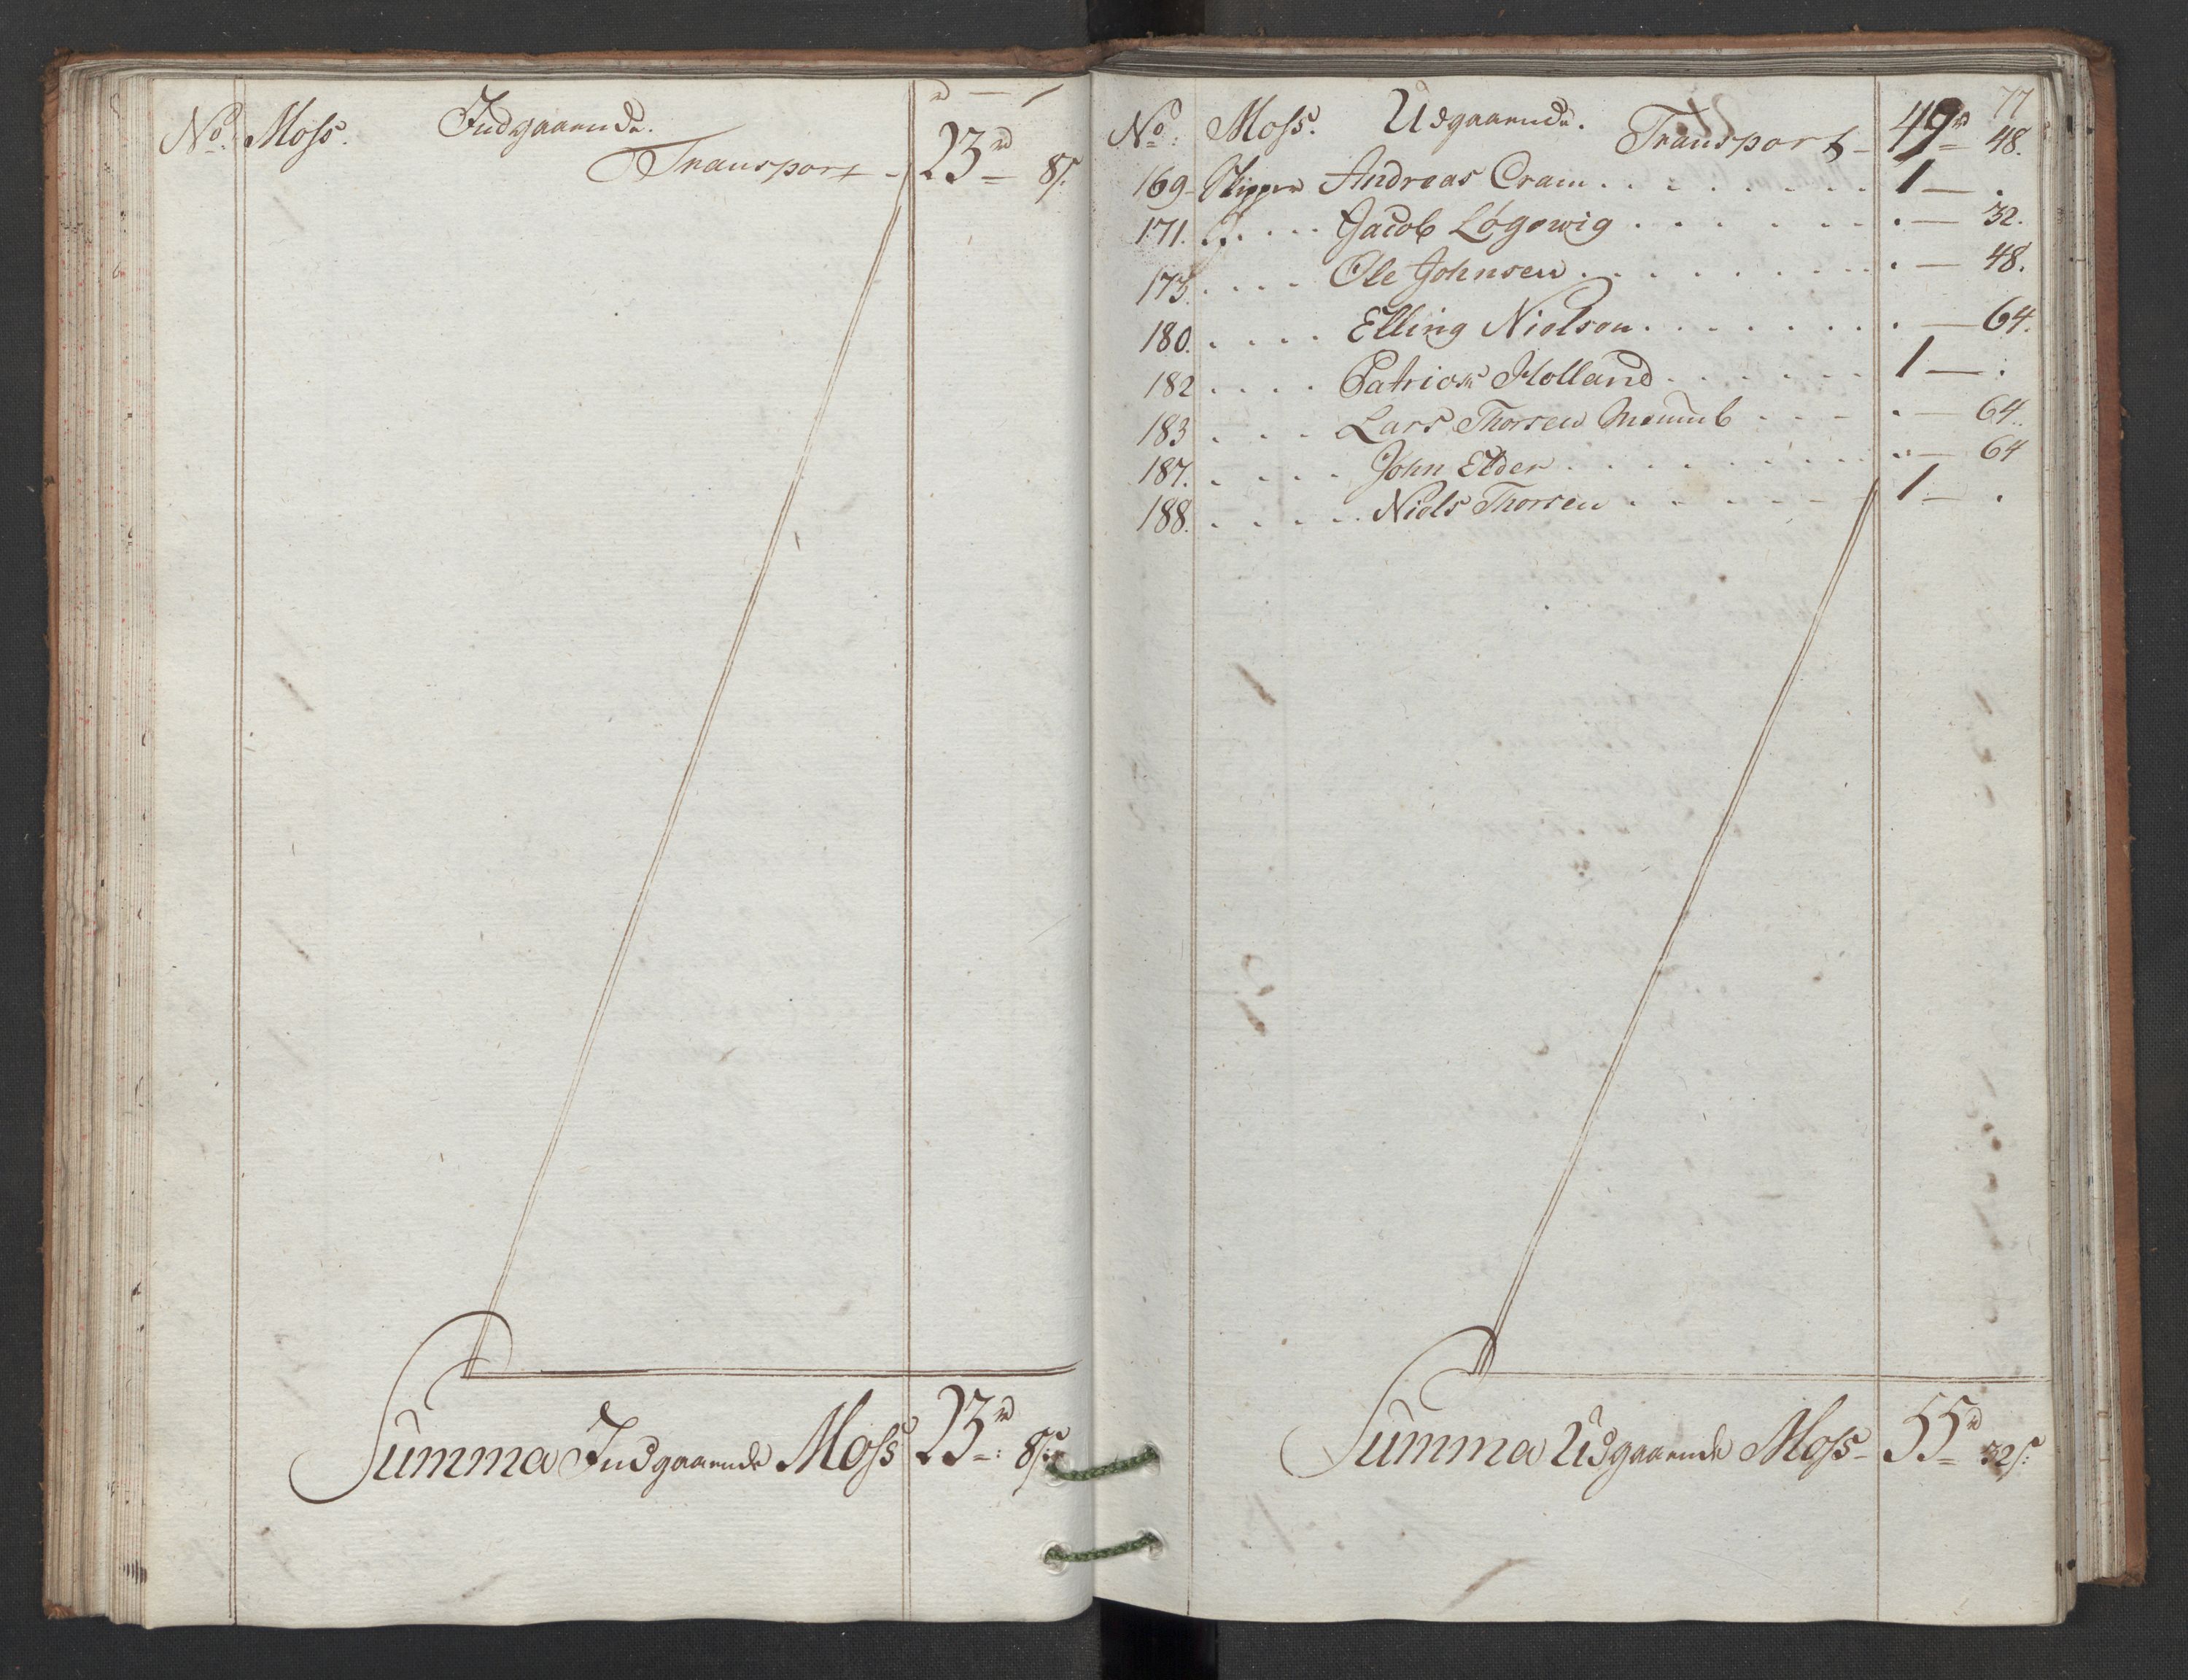 No. Moss. Indgaaende.
Transport - 23 rd 8 s:
Summa Indgaaende Moss 23 rd: 8 s:
77
No: Moss. Udgaaende. Transport - 49 rd 48.
169. Skipper Andreas Cram . . . . . . . 1 — .
171. . . . . Jacob Løgewig . . . . . . . — 32.
173. . . . . Ole Johnsen . . . . . . . . — 48.
180. . . . . Elling Nielsen . . . . . . . — 64.
182 . . . . Patrick Holland . . . . . . 1 — .
183 . . . Lars Thorsen . . . . — 64.
187. . . . . John Elder . . . . . . . . — 64
188. . . . . Niels Thorsen . . . . . . 1 — .
Summa Udgaaende Moss - 55 rd 32 s: